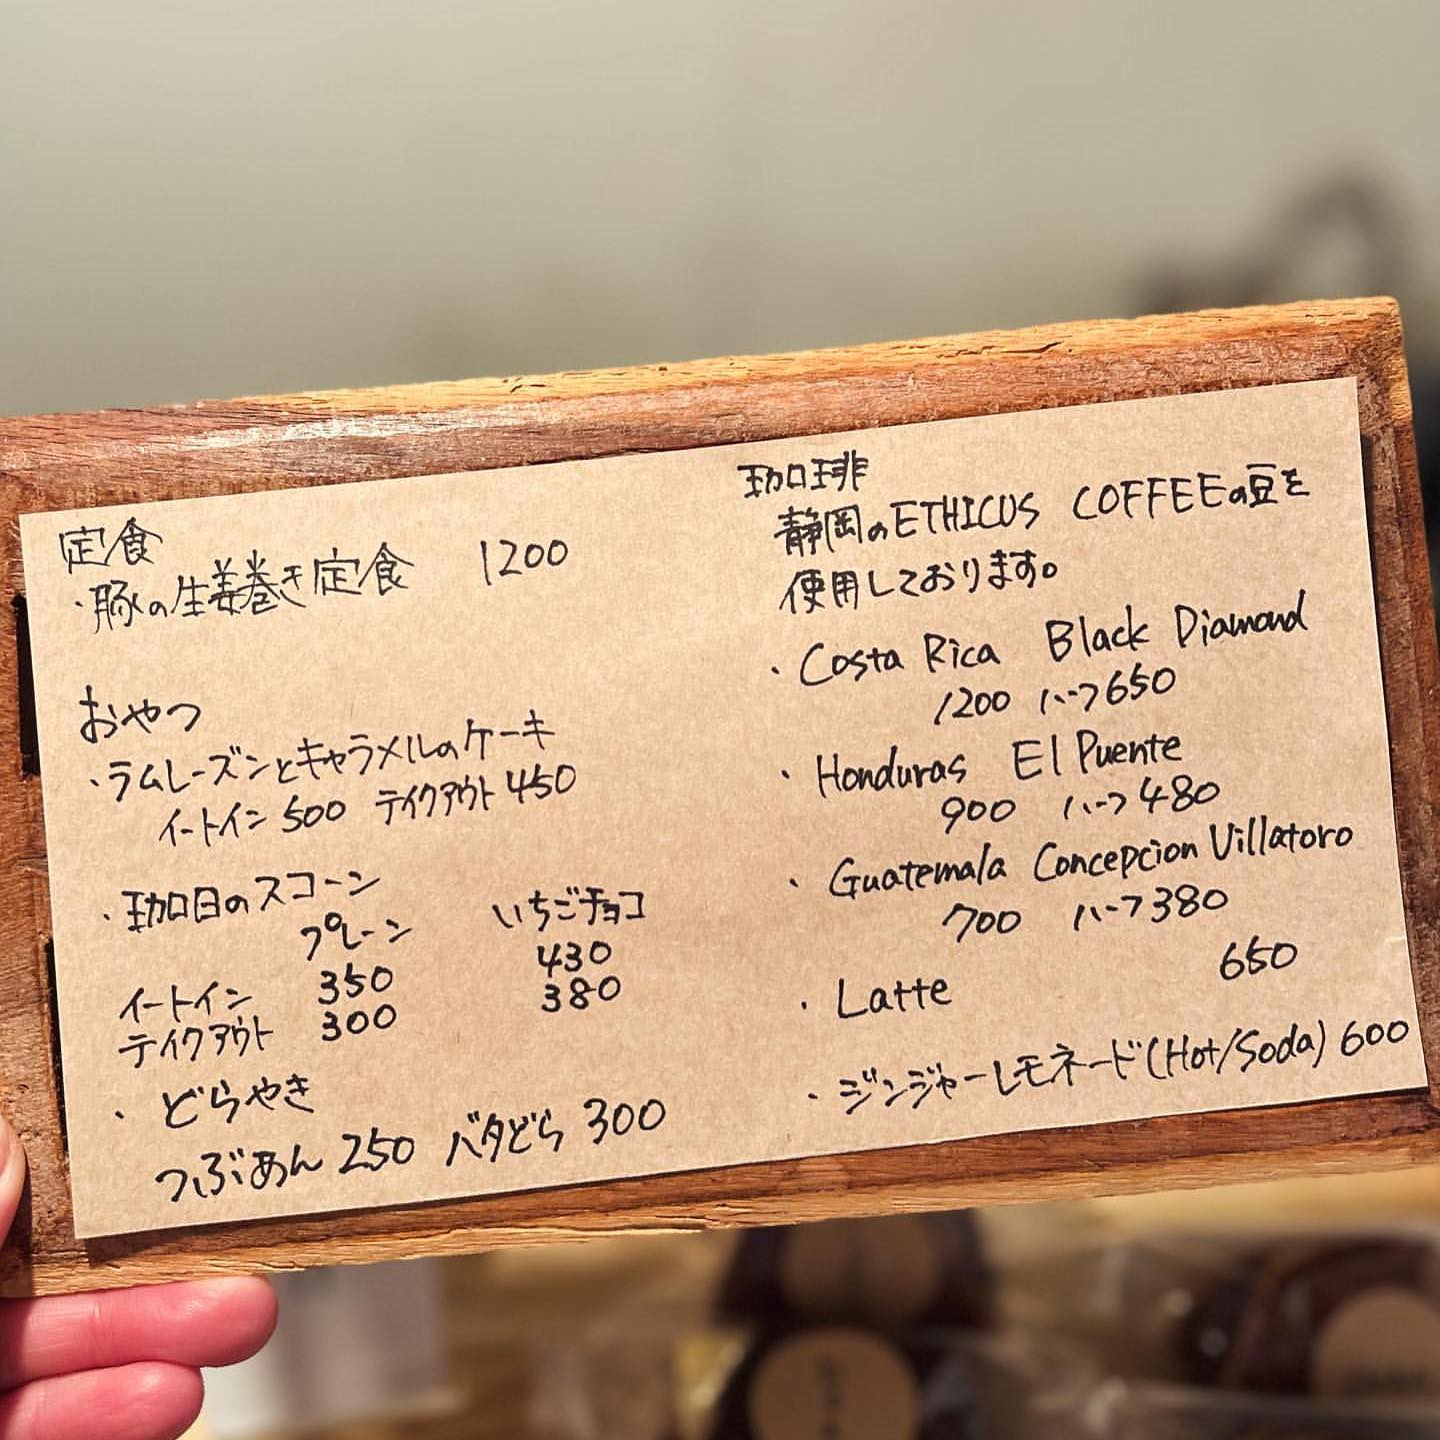 定食
・豚の生姜巻き定食 1200
おやつ
・ラムレーズンとキャラメルのケーキ
イートイン 500 テイクアウト 450
・珈日のスコーン
プレーン いちごチョコ
イートイン 350 430
テイクアウト 300 380
・どらやき
つぶあん 250 バタどら 300
珈琲
静岡のETHICUS COFFEEの豆を
使用しております。
・Costa Rica Black Diamond
1200 ハーフ650
・Honduras El Puente
900 ハーフ480
・Guatemala Concepcion Villatoro
700 ハーフ380
・Latte 650
・ジンジャーレモネード(Hot/Soda) 600